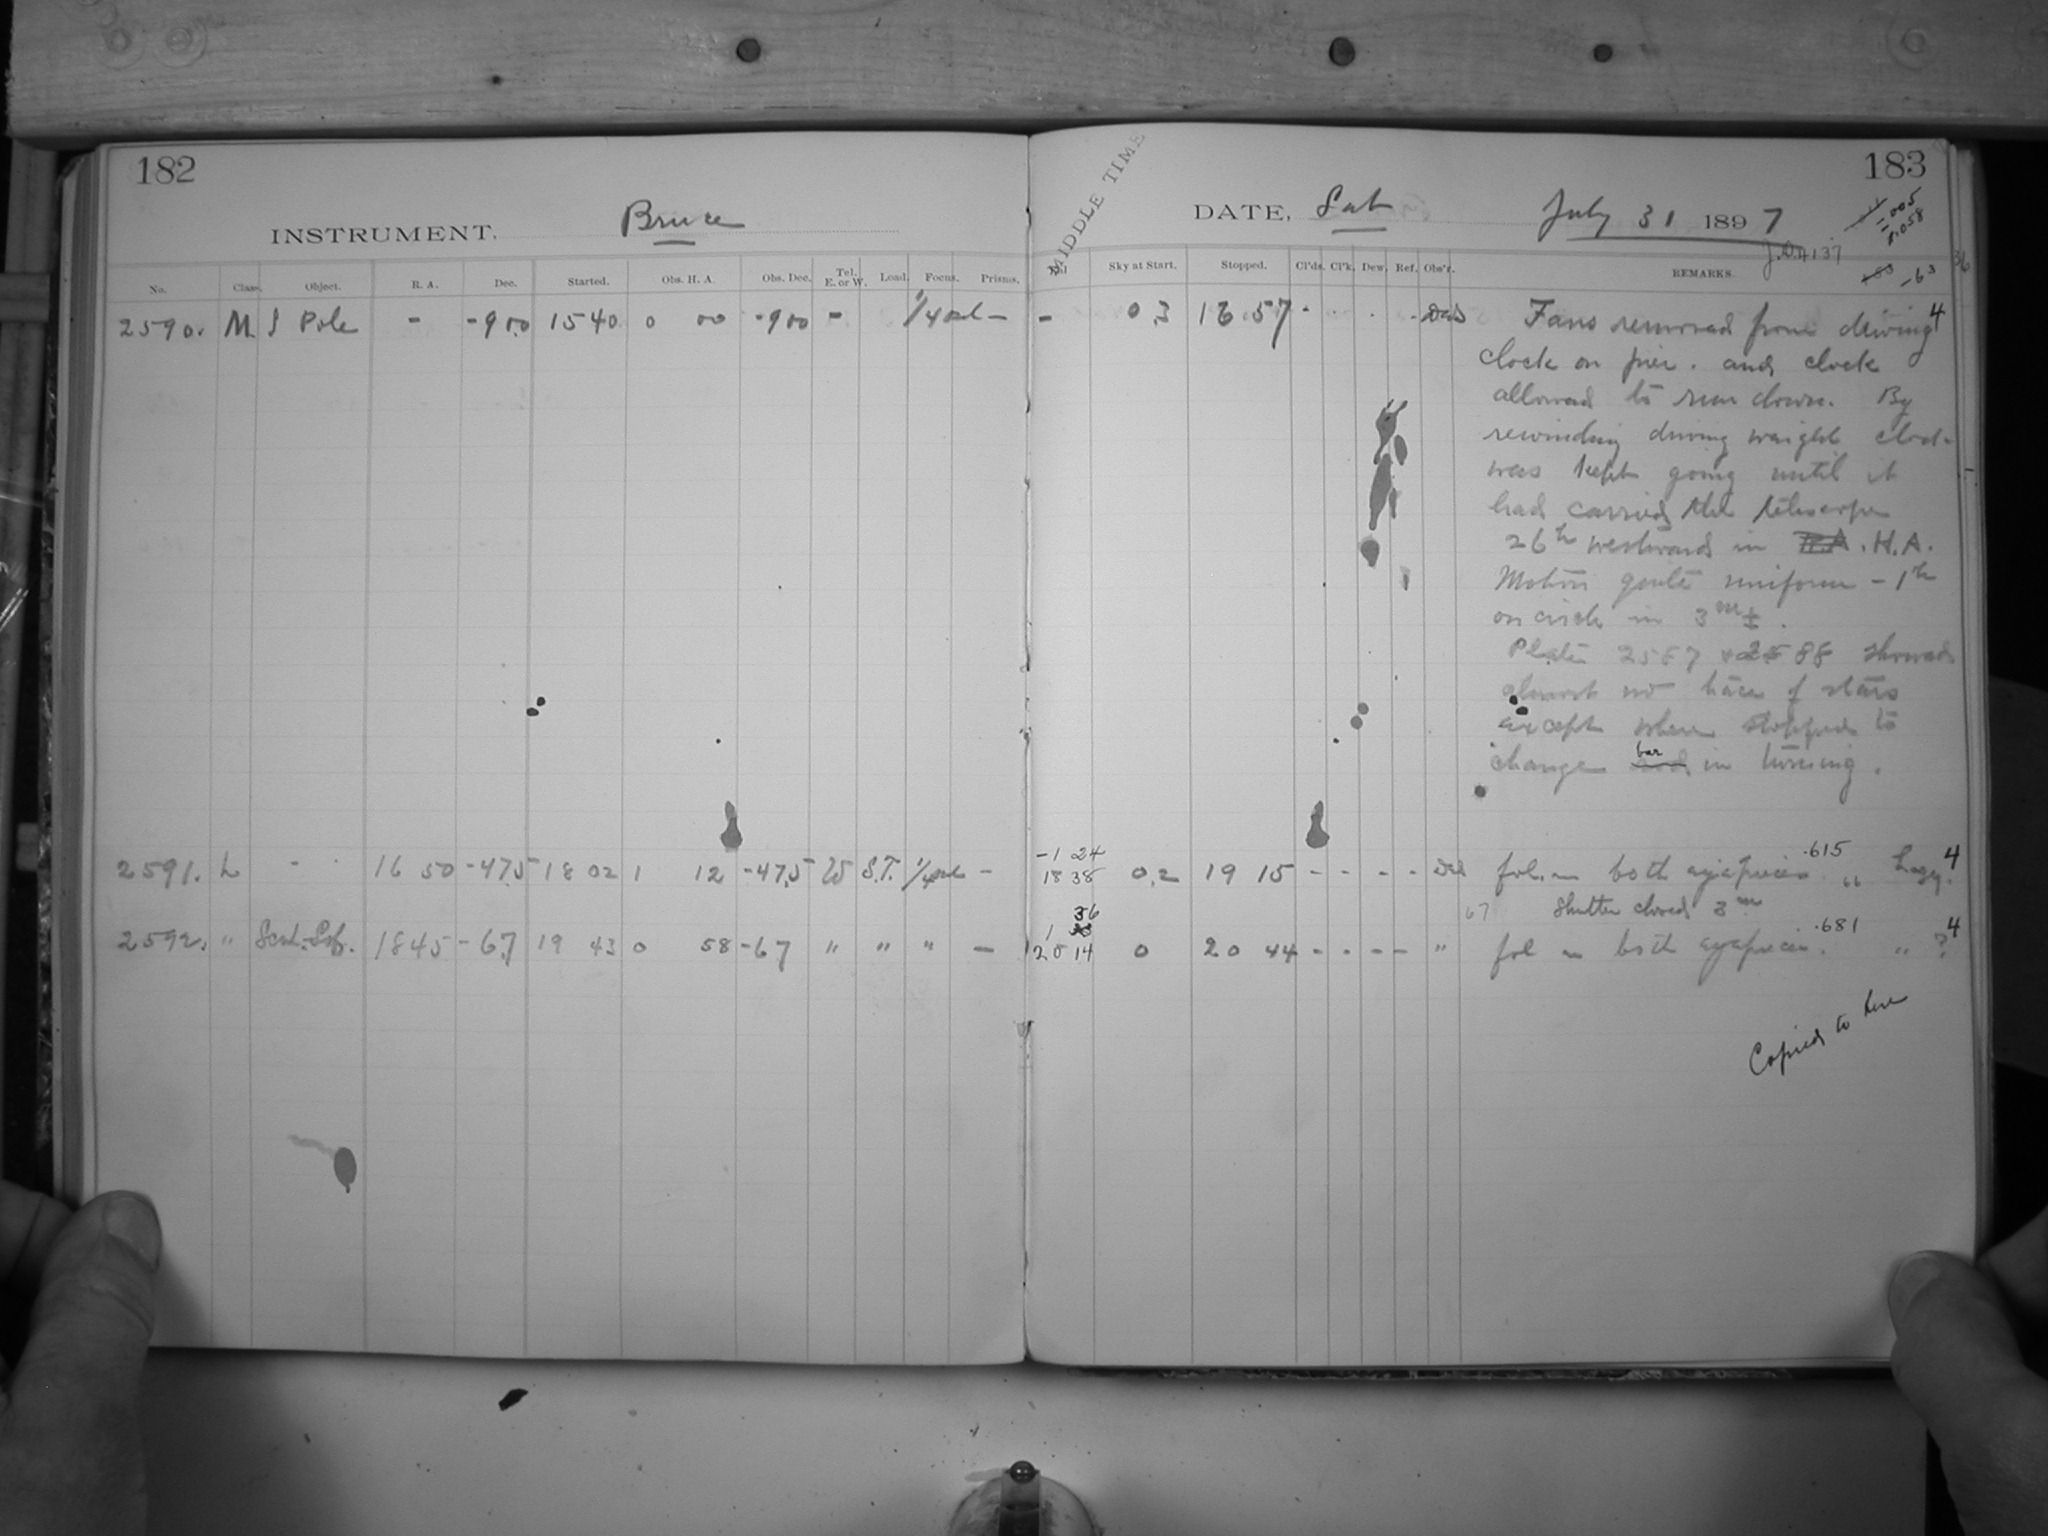 182
INSTRUMENT, Bruce
No. Class. Object. R. A. Dec. Started. Obs. H. A. Obs. Dec. Tel. E. or W. Load. Focus. Prisms.
2590. M S Pole - -90.0 15 40 0 00 -900 - -
2591. L - 16 50 -47.5 18 02 1 12 -47.5 W S.T. -
2592. " 1845 -67 19 43 0 58 -67 " " " -
MIDDLE TIME
183
DATE, Sat July 31 1897
.005
8.058
-63
36
Sky at Start. Stopped. Cl'ds. Cl'k. Dew. Ref. Obs'r. REMARKS.
- 0.3 16 57 - Fans removed from driving 4
clock on pier. and clock
allowed to run down. By
rewinding driving weight clock
was kept going until it
had carried the telescope
26h westward in R.A. H.A.
Motion quite uniform - 1h
on circle in 3m±.
Plates 2587 + 2588 showed
almost no trace of stars
except where stopped to
change bar in turning.
-1 24
18 38 0.2 19 15 - - - - fol. in both eyepieces .615 " 4
67 Shutter closed 3m
36
1
20 14 0 20 44 - - - - " fol in both eyepieces. .681 " ? 4
Copied to here